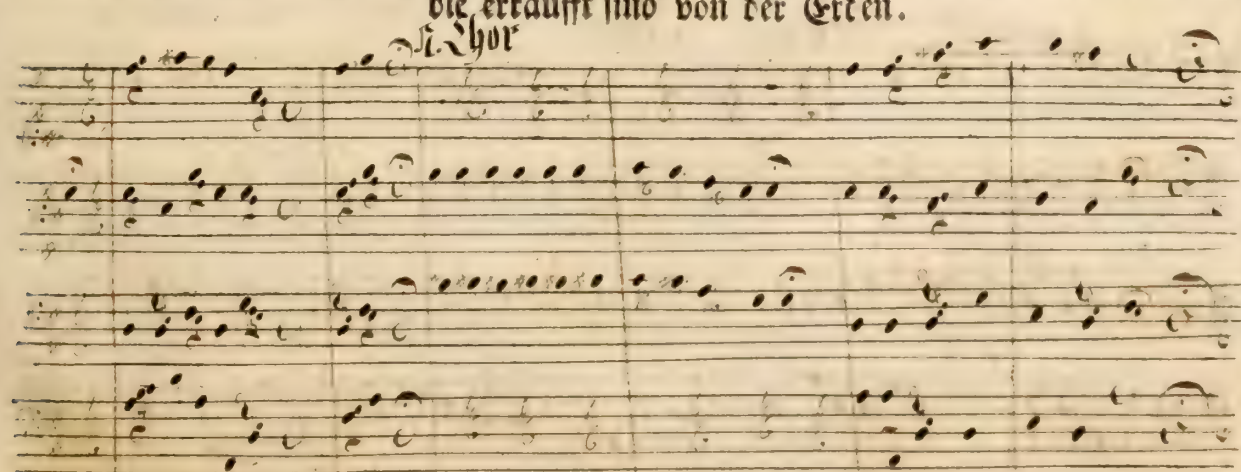 die erkaufft sind von der Erden.
Chor